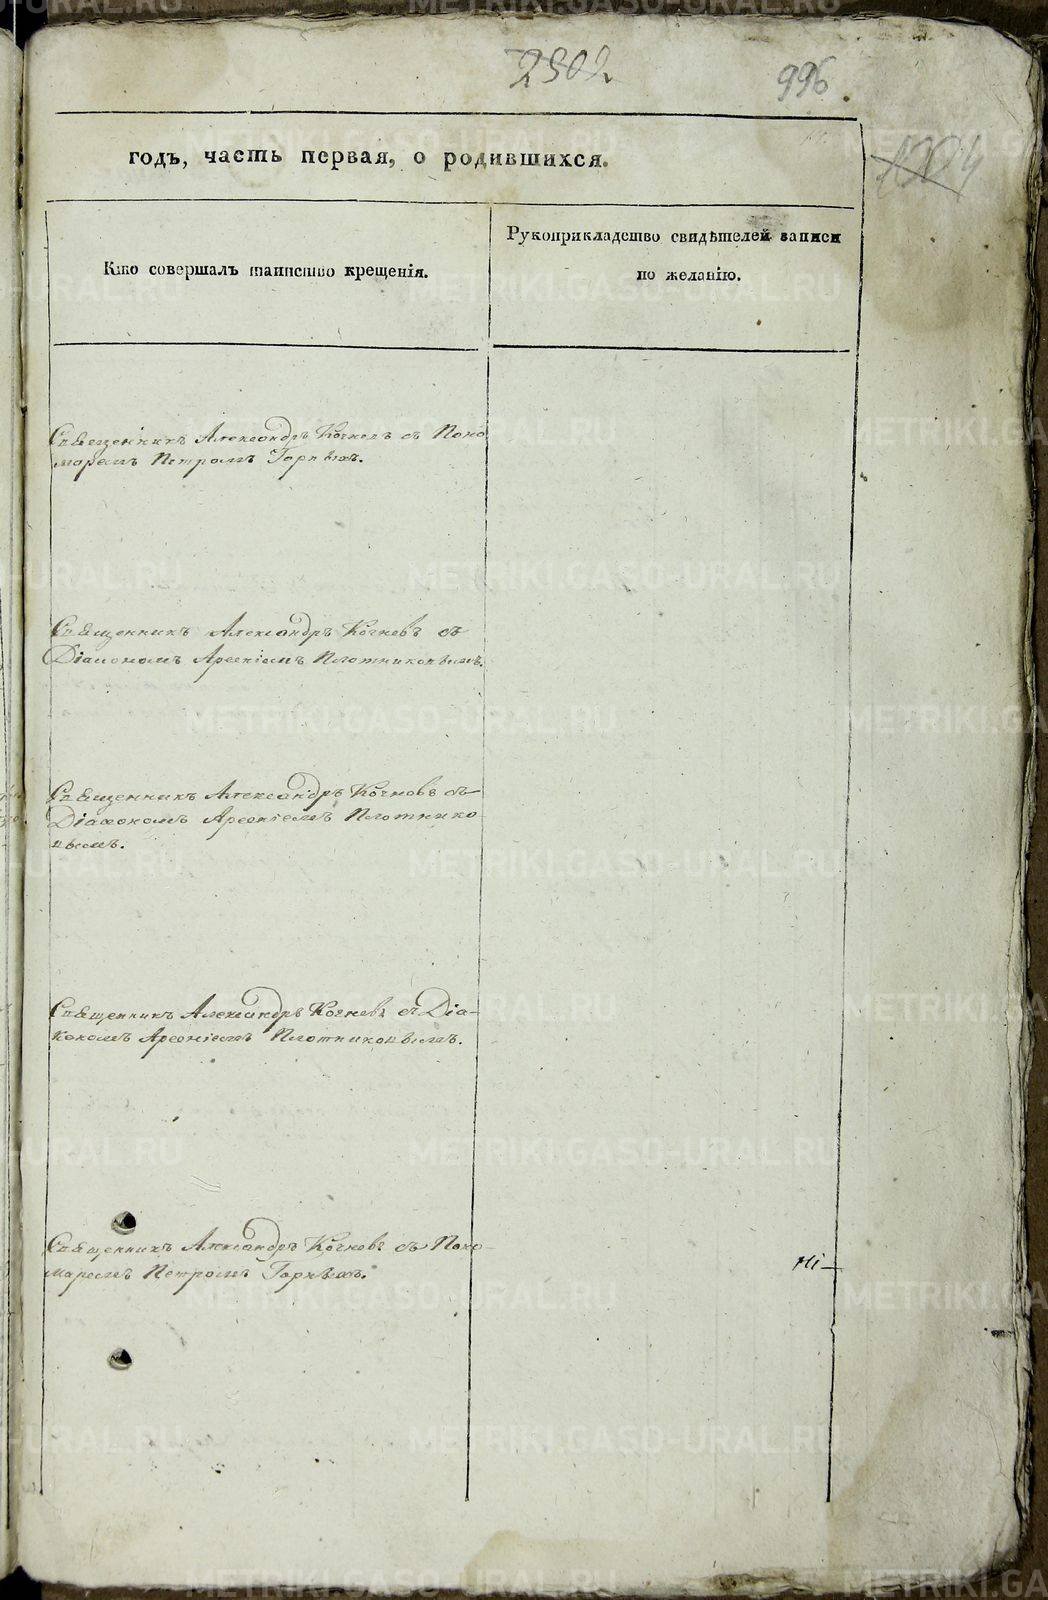 2502
996
1004
годъ, часть первая, о родившихся.
Кто совершалъ таинство крещенія.
Рукоприкладство свидѣтелей записи
по желанію.
Священникъ Александръ Кочневъ съ Поно
маремъ Петромъ Горныхъ.
Священникъ Александръ Кочневъ съ
Діакономъ Арсеніемъ Плотниковымъ.
Священникъ Александръ Кочневъ съ
Діакономъ Арсеніемъ Плотнико
вымъ.
Священникъ Александръ Кочневъ съ Діа-
кономъ Арсеніемъ Плотниковымъ.
Священникъ Александръ Кочневъ съ Поно-
маремъ Петромъ Горныхъ.
METRIKI.GASO-URAL.RU